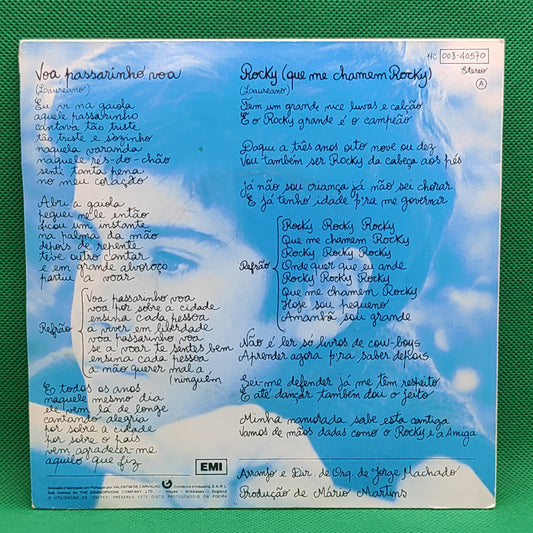 11C 008-40570
Stereo
A
Voa passarinho voa
(Laureano)
Eu vi na gaiola
aquele passarinho
cantava tão triste
tão triste e sozinho
naquela varanda
naquele rés-do-chão
senti tanta pena
no meu coração
Abri a gaiola
peguei nele então
ficou um instante
na palma da mão
depois de repente
teve outro cantar
e em grande alvoroço
partiu a voar
Refrão
Voa passarinho voa
voa por sobre a cidade
ensina cada pessoa
a viver em liberdade
voa passarinho voa
se a voar te sentes bem
ensina cada pessoa
a não querer mal a
(ninguém
E todos os anos
naquele mesmo dia
ele vem lá de longe
cantando alegria
por sobre a cidade
por sobre o país
vem agradecer-me
aquilo que fiz
Rocky (que me chamem Rocky)
(Laureano)
Tem um grande nice luvas e calção
E o Rocky grande é o campeão
Daqui a três anos oito nove ou dez
Vou também ser Rocky da cabeça aos pés
Já não sou criança já não sei chorar
E já tenho idade p'ra me governar
Refrão
Rocky Rocky Rocky
Que me chamem Rocky
Rocky Rocky Rocky
Onde quer que eu ande
Rocky Rocky Rocky
Que me chamem Rocky
Hoje sou pequeno
Amanhã sou grande
Não é ler só livros de cow-boys
Aprender agora p'ra saber depois
Sei-me defender já me têm respeito
E até dançar também dou o jeito
Minha namorada sabe esta cantiga
Vamos de mãos dadas como o Rocky e a Amiga
Arranjo e Dir. de Orq. de Jorge Machado
Produção de Mário Martins
EMI
Gravado e fabricado em Portugal por VALENTIM DE CARVALHO Comércio e Indústria, S.A.R.L.
Sob licença de THE GRAMOPHONE COMPANY, LTD. - Hayes - Middlesex - England
A UTILIZAÇÃO DE "EMITEX" PRESERVA ESTE DISCO PROTEGENDO-O DA POEIRA